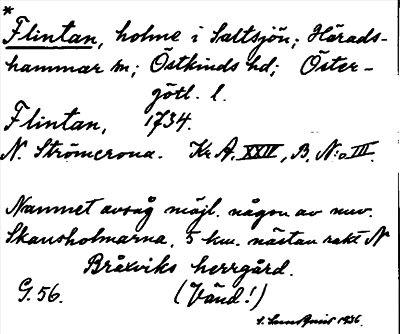 *
Flintan, holme i Saltsjön; Härads-
hammar sn; Östkinds hd; Öster-
götl. l.
Flintan, 1734.
N. Strömcrona. Kr A, XXIV, B, N:o III.
Namnet avsåg möjl. någon av nuv.
Skansholmarna, 5 km. nästan rakt N
Bråxviks herrgård.
G. 56. (Vänd!)
1936.